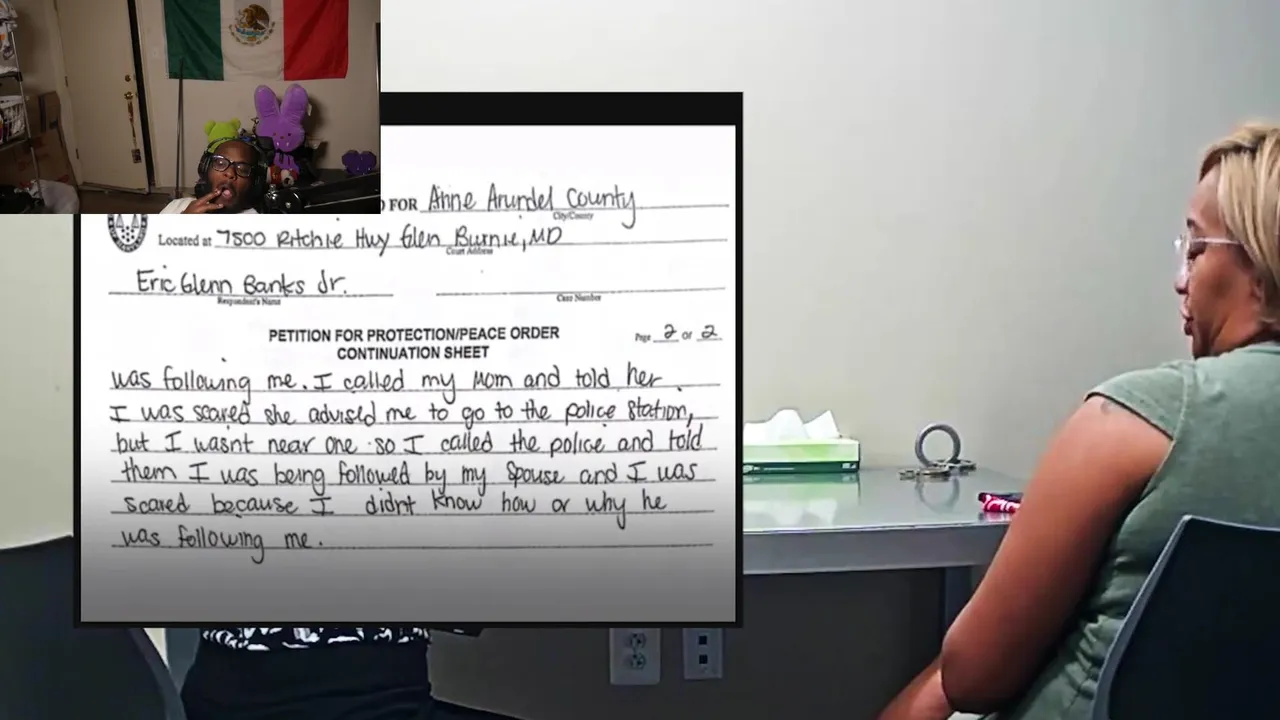 FOR Anne Arundel County
City/County
Located at 7500 Ritchie Hwy Glen Burnie, MD
Court Address
Eric Glenn Banks Jr.
Respondent's Name
Case Number
PETITION FOR PROTECTION/PEACE ORDER
CONTINUATION SHEET
Page 2 of 2
was following me. I called my Mom and told her
I was scared she advised me to go to the police station,
but I wasnt near one so I called the police and told
them I was being followed by my spouse and I was
scared because I didnt know how or why he
was following me.